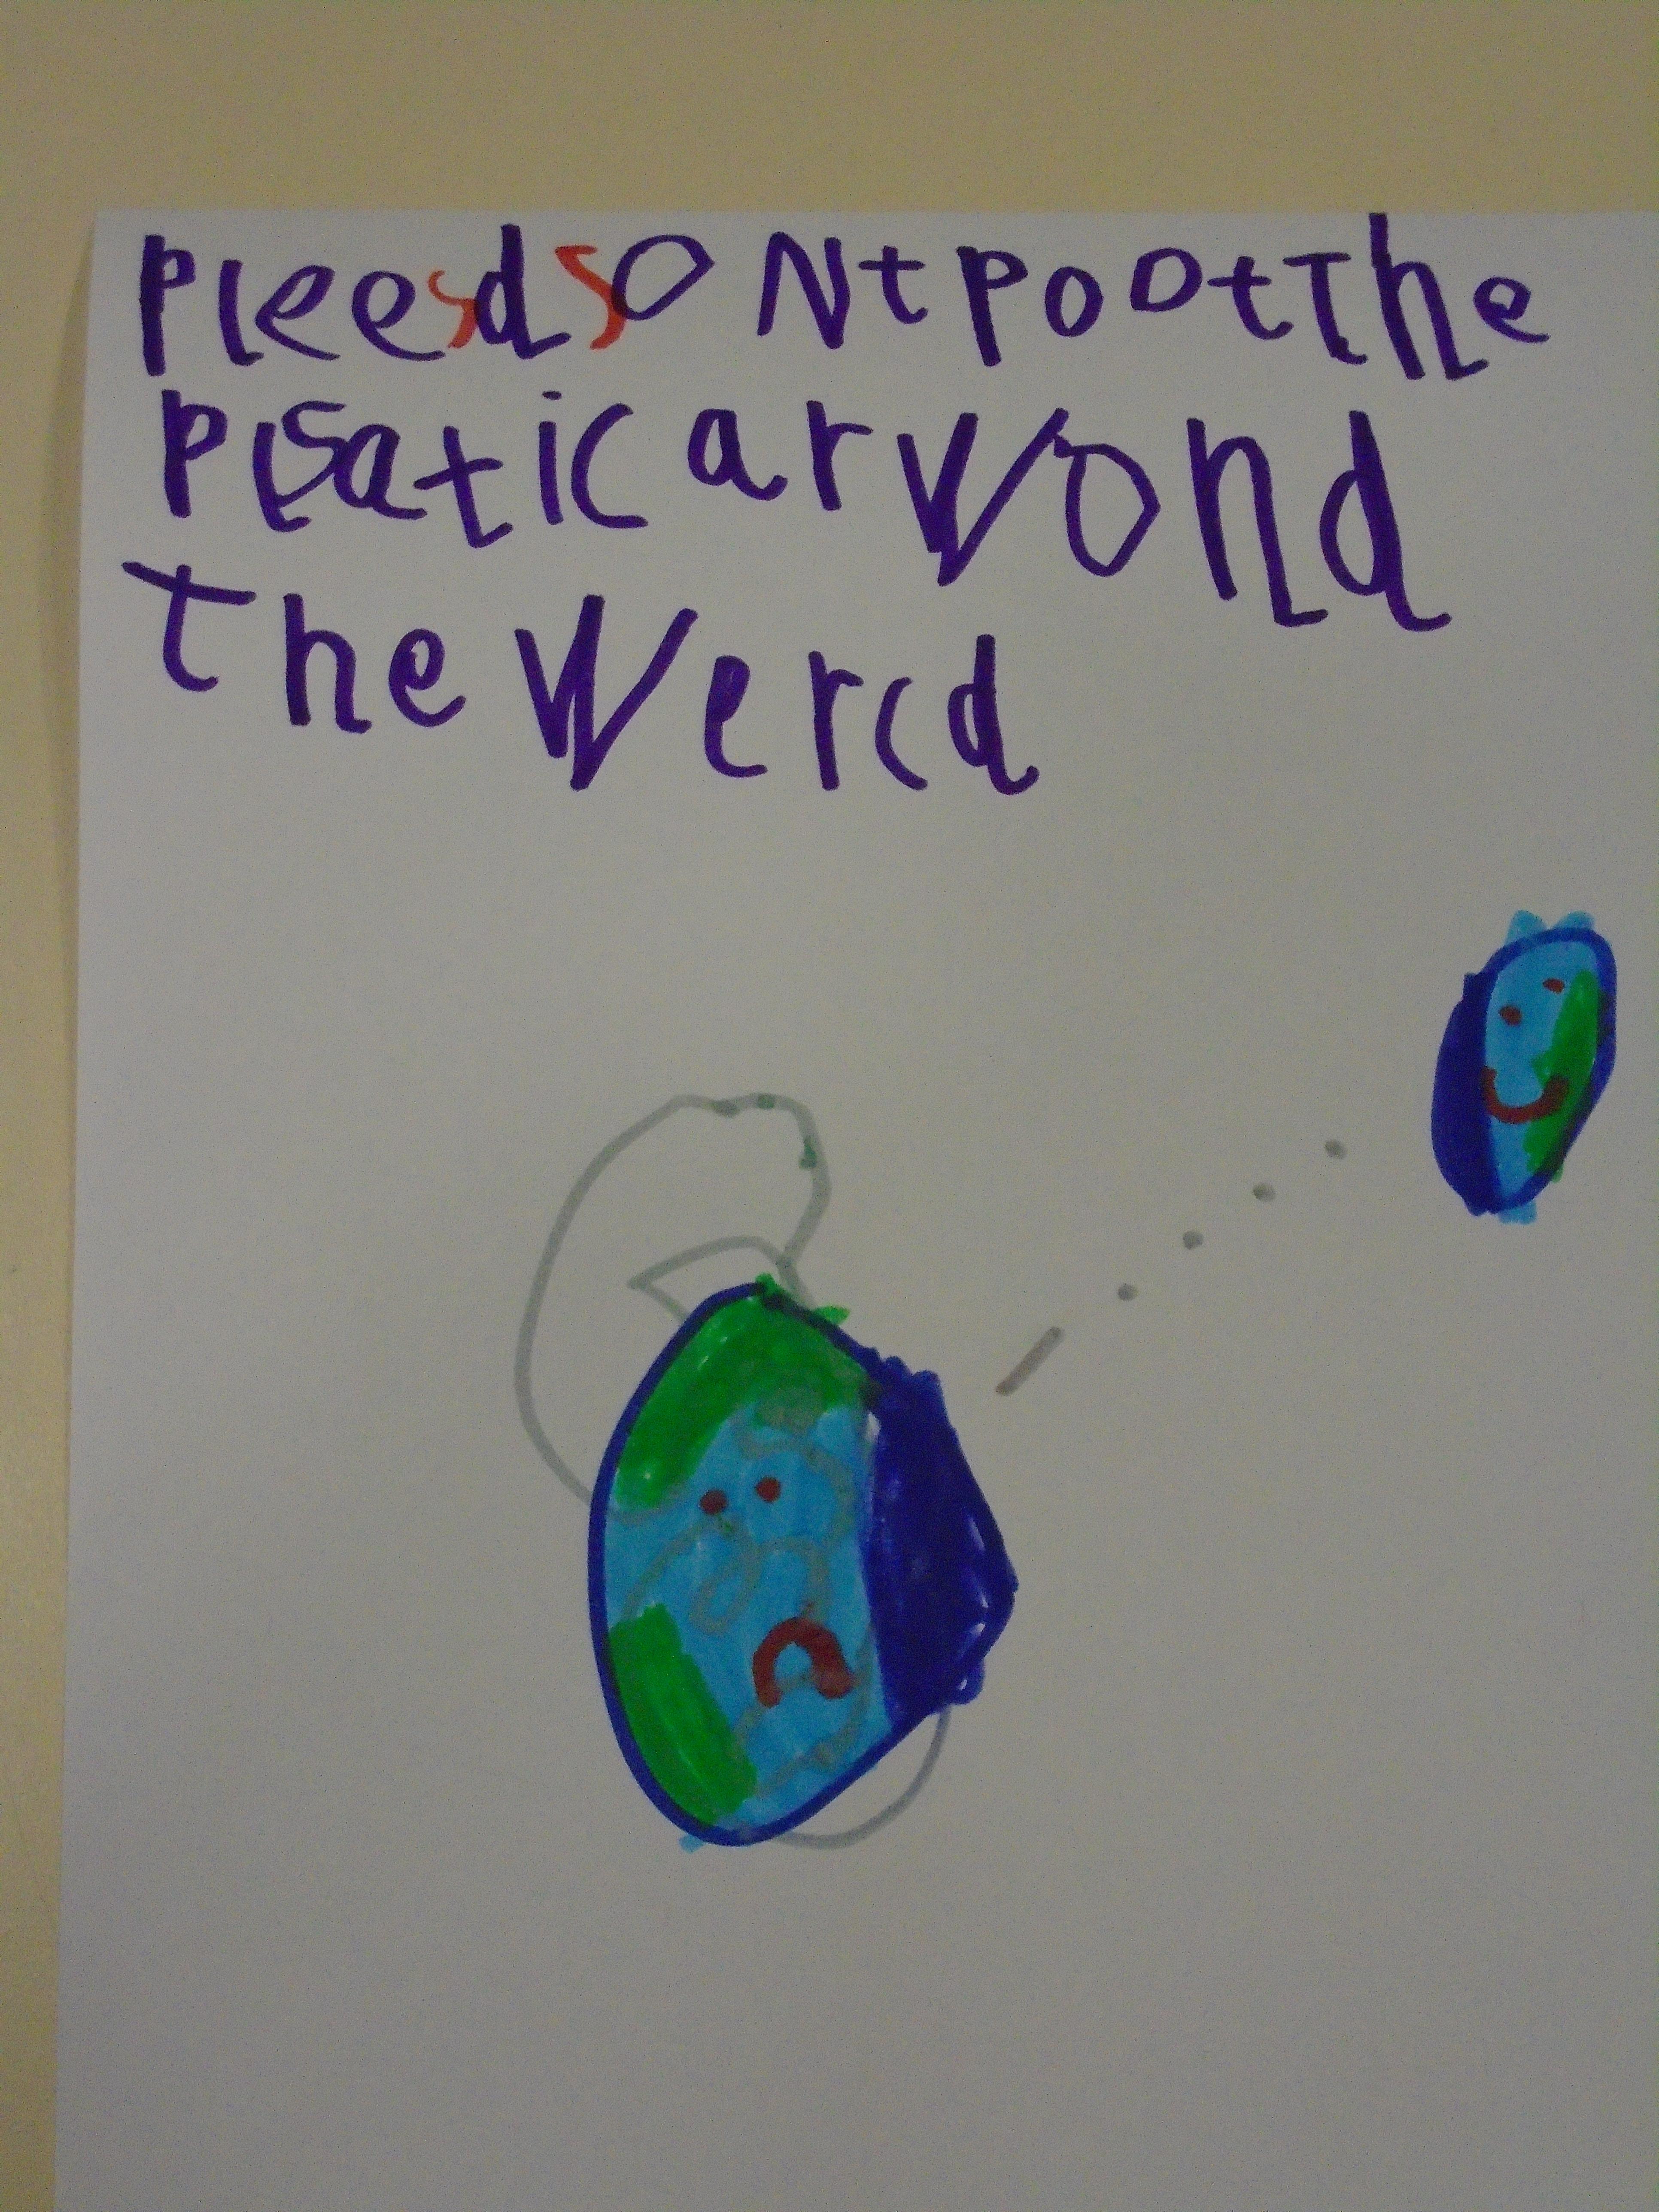 pleesdsont poot the
plsatic arvond
the wercd